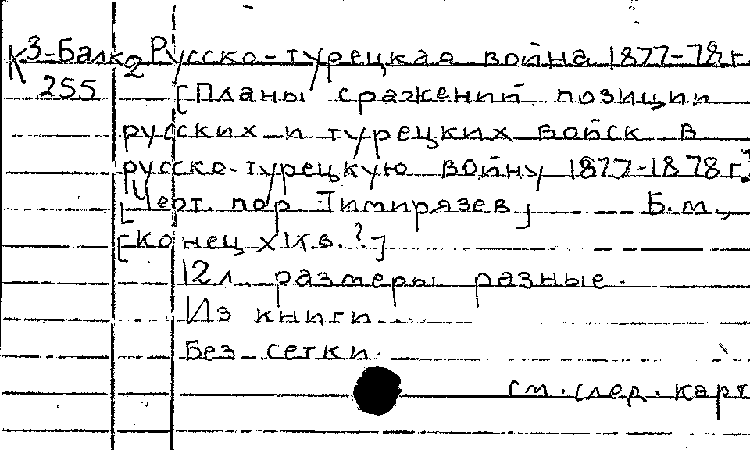 К 3-Балк2 Русско-турецкая война 1877-78г.
255 [Планы сражений позиции
русских и турецких войск в
русско-турецкую войну 1877-1878г.]
[Черт. пор. Тимирязев] Б.м.,
[конец XIXв.?]
12л. размеры разные.
Из книги.
Без сетки.
См. след. карт